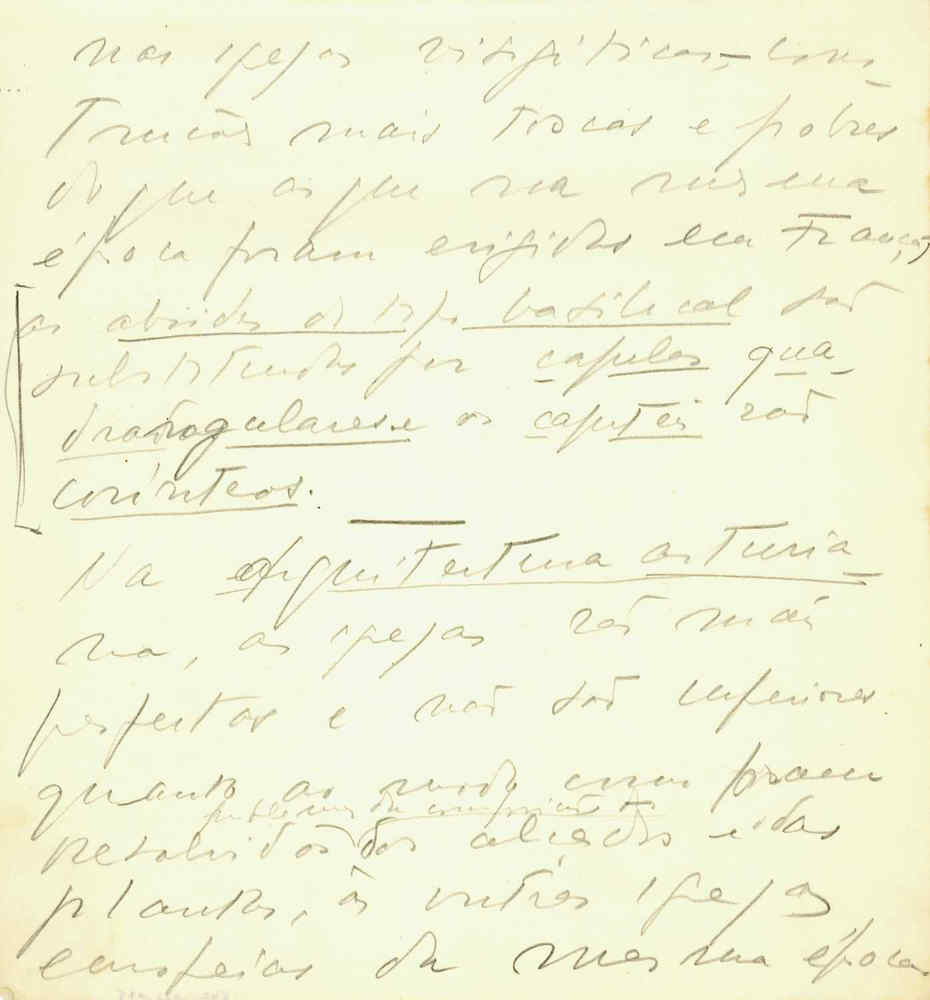 nas igrejas visigóticas, cons-
truções mais toscas e pobres
do que as que na mesma
época foram erigidas em França,
as absides de tipo basilical são
substituidas por capelas qua-
drangulares e os capiteis são
corínteos.
Na Arquitectura asturia-
na, as igrejas são mais
perfeitas e não são inferiores
quanto ao modo como foram
problemas da composição
resolvidos dos alçados e das
plantas, às outras igrejas
europeias da mesma época.